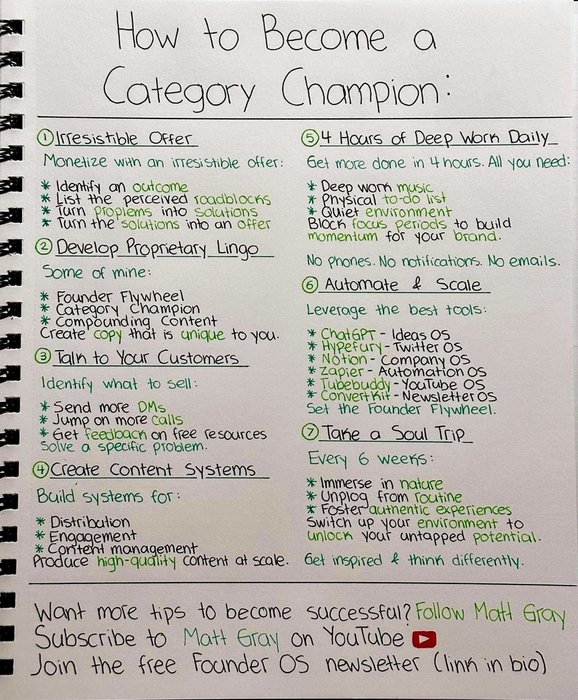 How to Become a
Category Champion:
① Irresistible Offer
Monetize with an irresistible offer:
* Identify an outcome
* List the perceived roadblocks
* Turn problems into solutions
* Turn the solutions into an offer
② Develop Proprietary Lingo
Some of mine:
* Founder Flywheel
* Category Champion
* Compounding Content
Create copy that is unique to you.
③ Talk to Your Customers
Identify what to sell:
* Send more DMs
* Jump on more calls
* Get feedback on free resources
Solve a specific problem.
④ Create Content Systems
Build systems for:
* Distribution
* Engagement
* Content management
Produce high-quality content at scale.
⑤ 4 Hours of Deep Work Daily
Get more done in 4 hours. All you need:
* Deep work music
* Physical to-do list
* Quiet environment
Block focus periods to build
momentum for your brand.
No phones. No notifications. No emails.
⑥ Automate & Scale
Leverage the best tools:
* ChatGPT - Ideas OS
* Hypefury - Twitter OS
* Notion - Company OS
* Zapier - Automation OS
* Tubebuddy - YouTube OS
* ConvertKit - Newsletter OS
Set the Founder Flywheel.
⑦ Take a Soul Trip
Every 6 weeks:
* Immerse in nature
* Unplug from routine
* Foster authentic experiences
Switch up your environment to
unlock your untapped potential.
Get inspired & think differently.
Want more tips to become successful? Follow Matt Gray
Subscribe to Matt Gray on YouTube
Join the free Founder OS newsletter (link in bio)